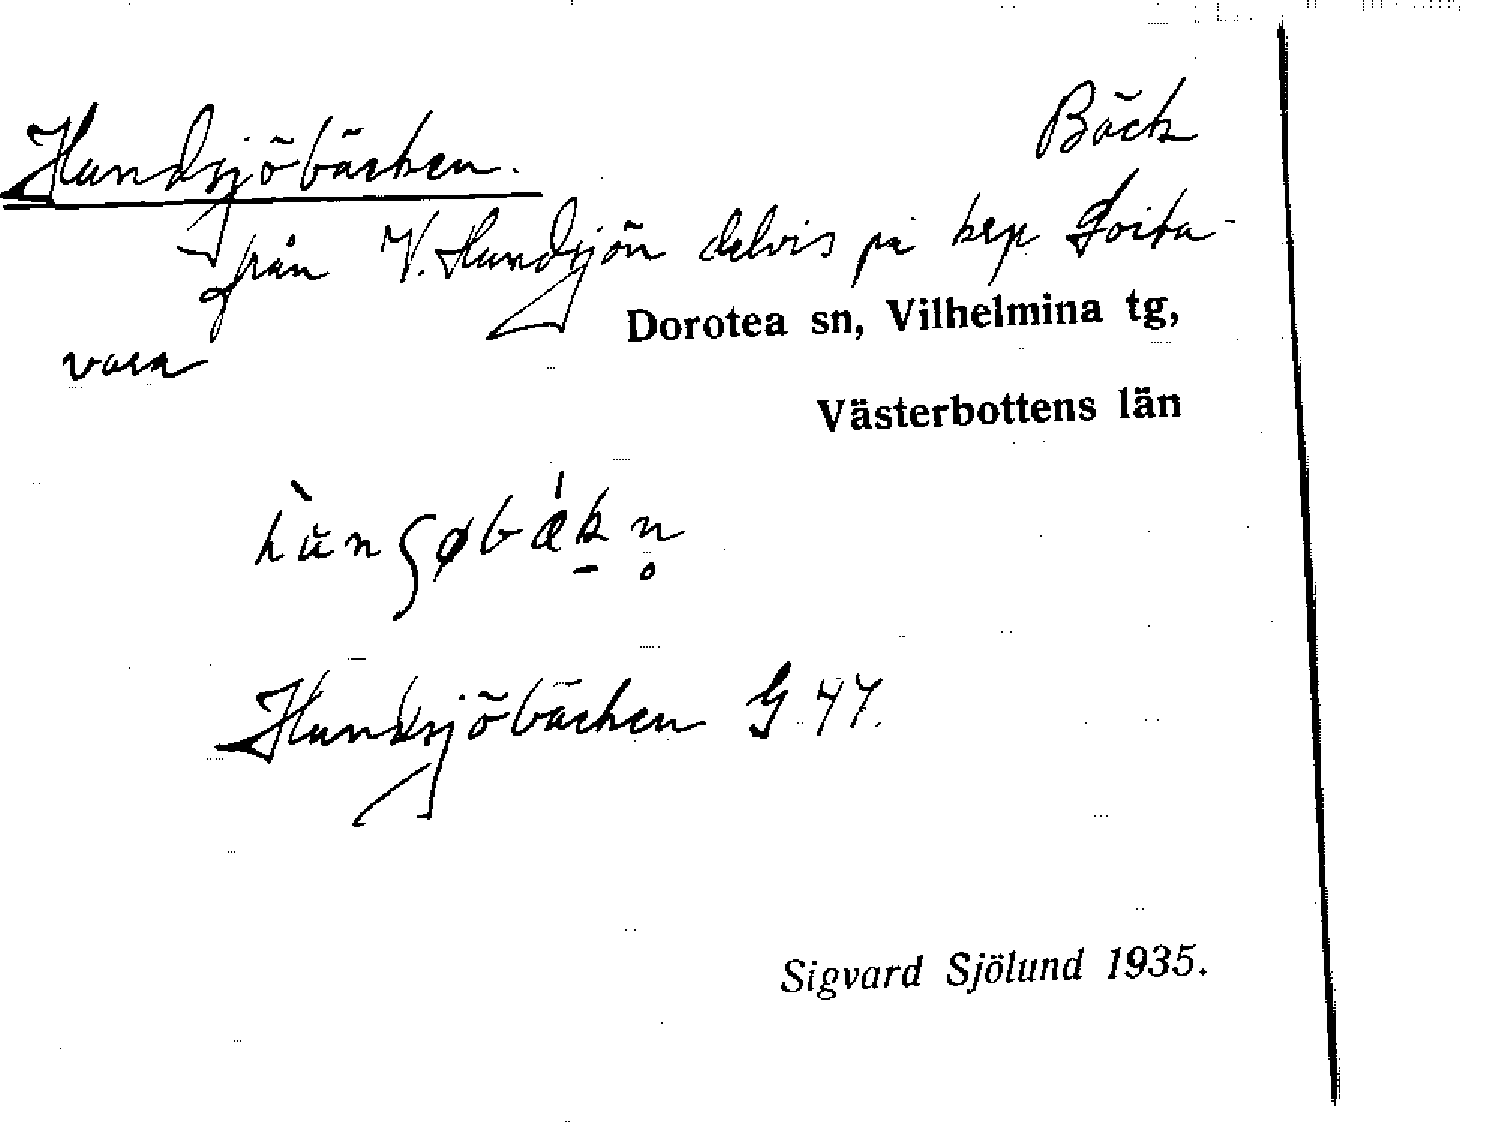 Hundsjöbäcken. Bäck
från V. Hundsjön delvis på
vara
Dorotea sn, Vilhelmina tg,
Västerbottens län
Hundsjöbäcken G 47.
Sigvard Sjölund 1935.